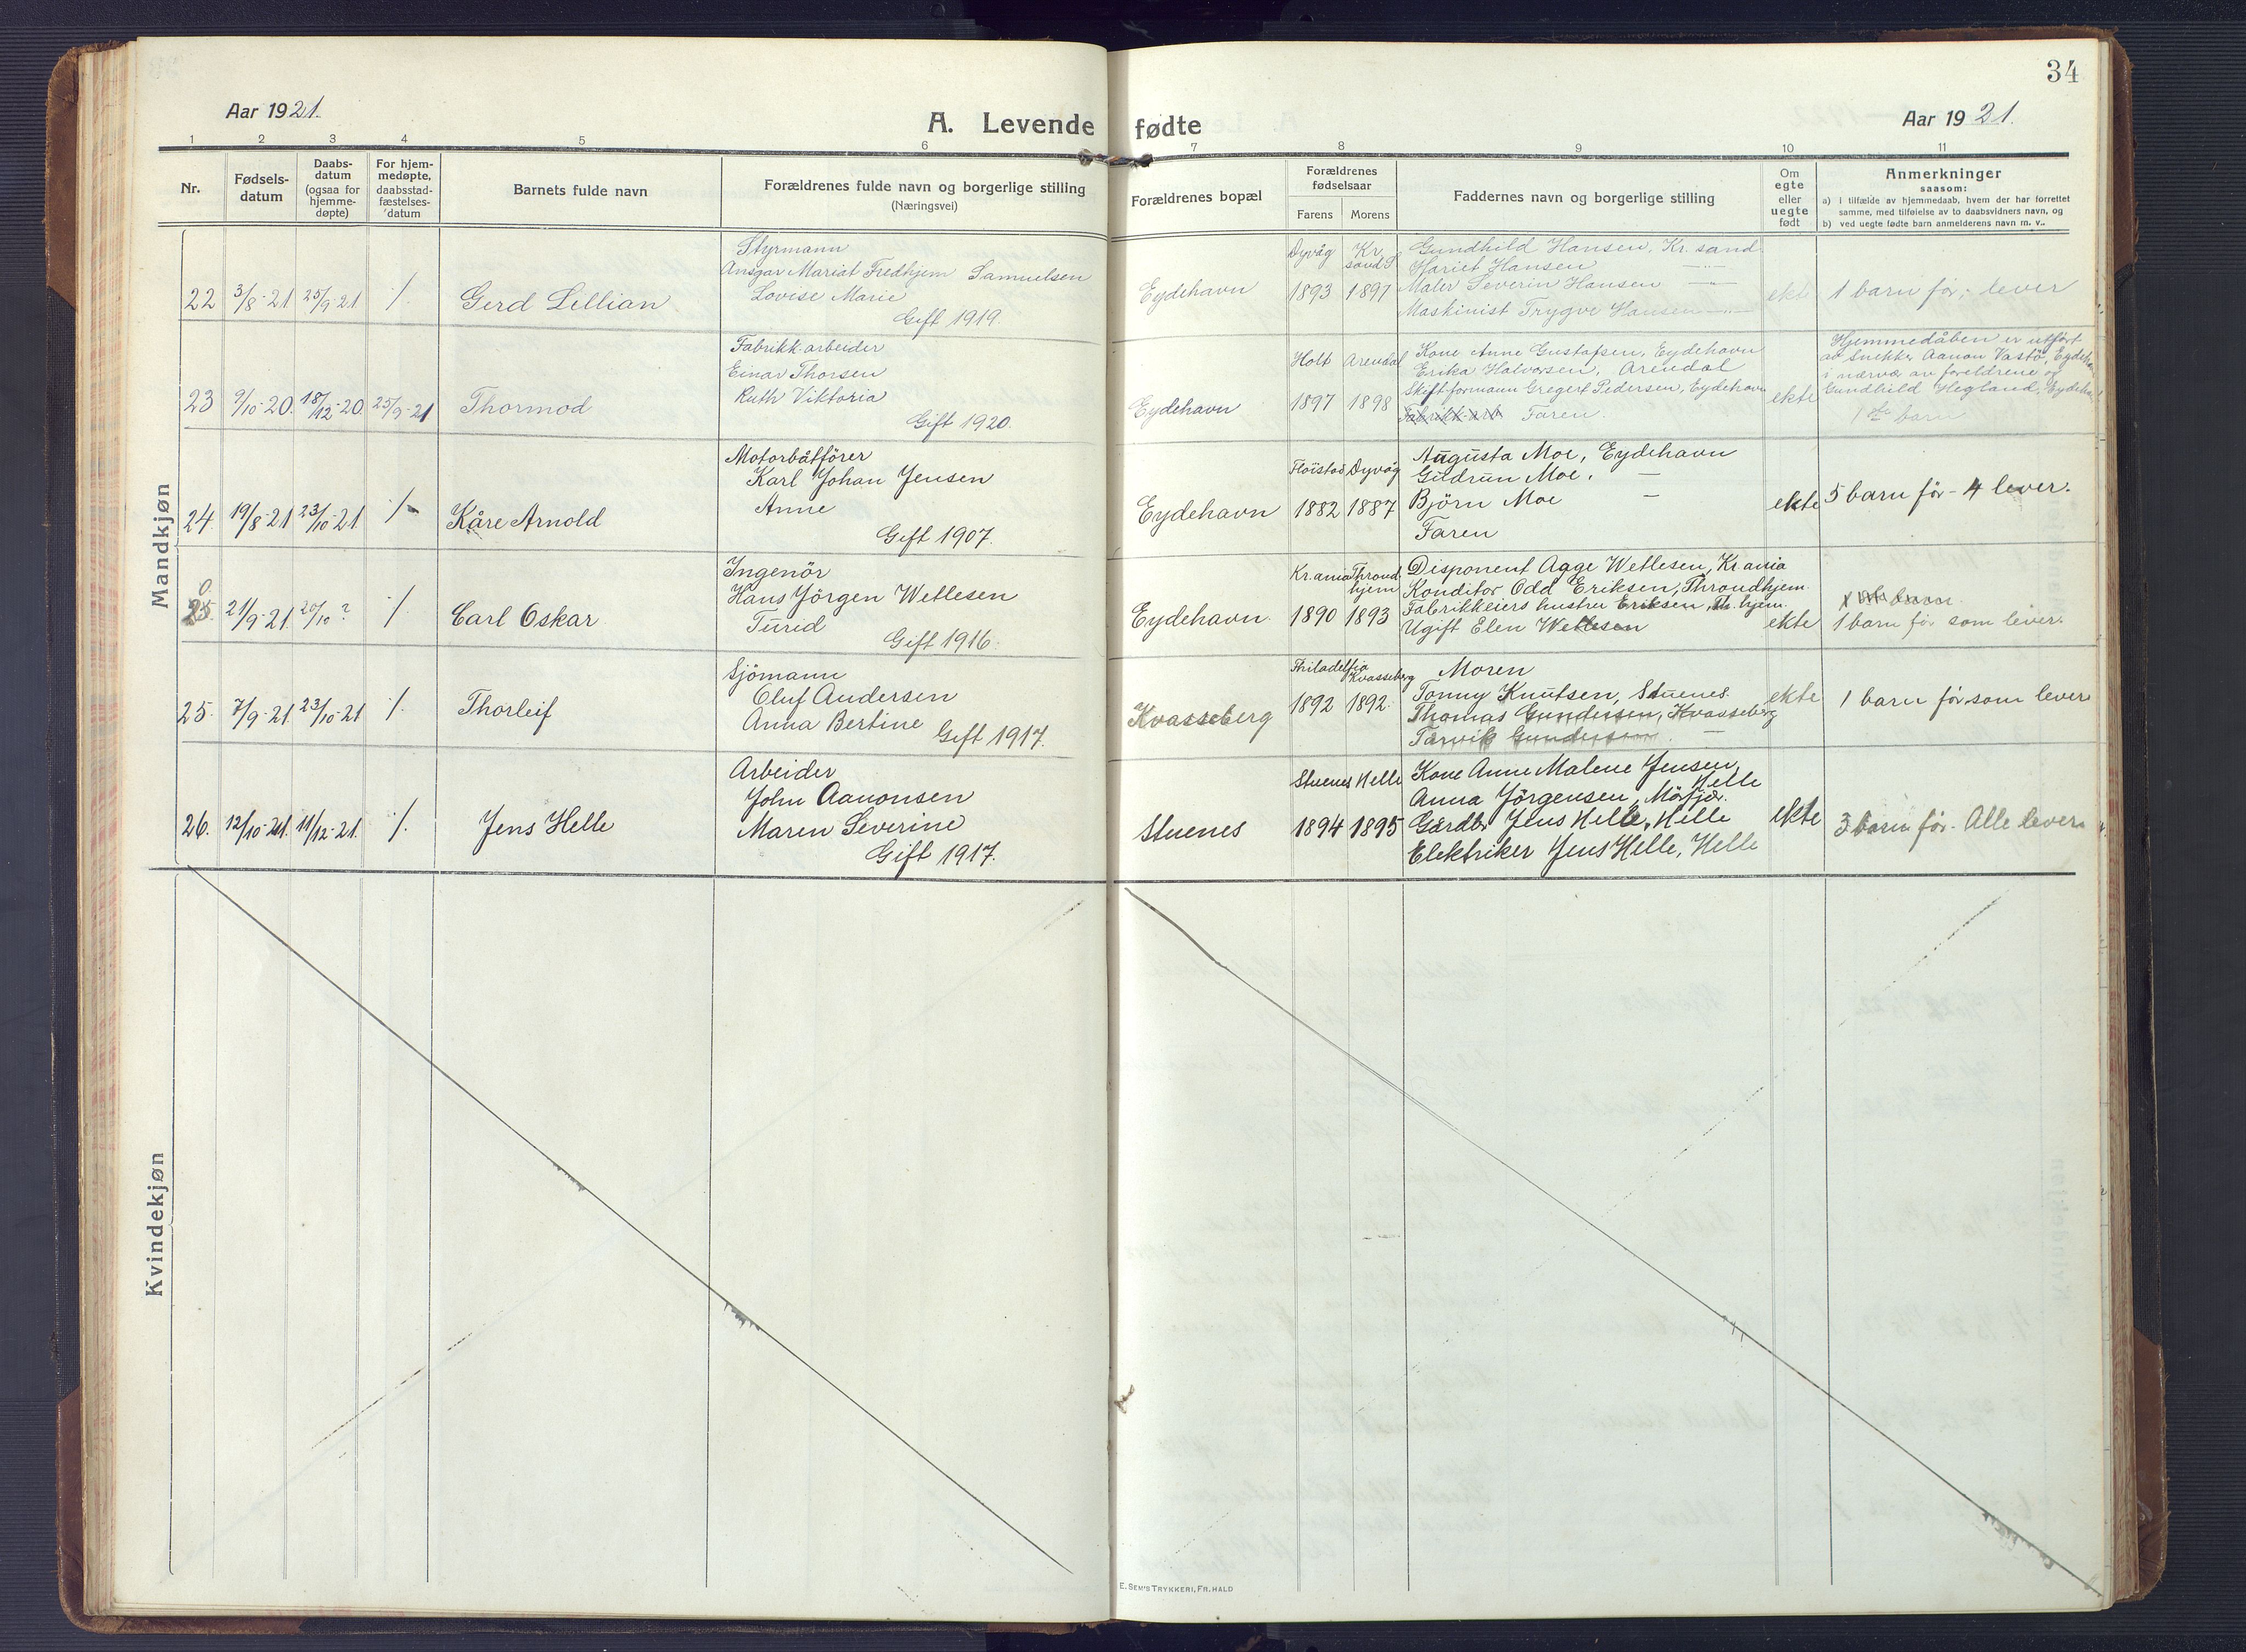 34
Aar 1921.
A. Levende fødte
Aar 1921.
1 2 3 4 5 6 7 8 9 10 11
Nr.
Fødsels-
datum
Daabs-
datum
(ogsaa for
hjemme-
døpte)
For hjem-
medøpte,
daabsstad-
fæstelses-
datum
Barnets fulde navn
Forældrenes fulde navn og borgerlige stilling
(Næringsvei)
Forældrenes bopæl
Forældrenes
fødselsaar
Farens Morens
Faddernes navn og borgerlige stilling
Om
egte
eller
uegte
født
Anmerkninger
saasom:
a) i tilfælde av hjemmedaab, hvem der har forrettet
samme, med tilføielse av to daabsvidners navn, og
b) ved uegte fødte barn anmelderens navn m. v..
Mandkjøn
22 3/8-21 25/9-21 ·/. Gerd Lillian
Styrmann
Ansgar Mariat Fredhjem Samuelsen
Lovise Marie
Gift 1919.
Eydehavn
Dyvåg 1893
Kr. sand S 1897
Gundhild Hansen, Kr. sand
Hariet Hansen —"—
Maler Severin Hansen —"—
Maskinist Trygve Hansen —"—
ekte
1 barn før; lever
23 9/10-20. 18/12-20. 25/9-21 Thormod
Fabrikk-arbeider
Einar Thorsen
Ruth Viktoria
Gift 1920.
Eydehavn
Holt 1897
Arendal 1898
Kone Anne Gustafsen, Eydehavn
Erika Halvorsen, Arendal
Skiftformann Gregert Pedersen, Eydehavn
Fabrikk-arb Faren.
ekte
Hjemmedåben er utført
av snekker Aanon Vastø, Eydeha
i nærvær av foreldrene og
Gundhild Hegland, Eydeha
1ste barn
24. 19/8-21 23/10-21 ·/. Kåre Arnold
Motorbåtfører
Karl Johan Jensen
Anne
Gift 1907.
Eydehavn
Floistad 1882
Dyvåg 1887
Augusta Moe, Eydehavn
Gudrun Moe, —
Bjørn Moe —
Faren
ekte
5 barn før - 4 lever.
0
25. 21/9-21. 20/10 ? ·/. Carl Oskar
Ingenör
Hans Jörgen Wetlesen
Turid
Gift 1916.
Eydehavn.
Kr.ania 1890
Throndhjem 1893
Disponent Aage Wetlesen, Kr. ania
Konditor Odd Eriksen, Throndhjem.
Fabrikkeiers hustru Eriksen, Th. hjem.
Ugift Elen Wetlesen
ekte
1 barn før som lever.
25. 7/9-21. 23/10-21 ·/. Thorleif
Sjömann
Oluf Andersen
Anna Bertine
Gift 1917.
Kvasseberg
Philadelfia 1892
Kvasseberg 1892.
Moren
Tonny Knutsen, Stuenes.
Thomas Gundersen, Kvasseberg
Tarvik Gundersen. —
ekte
1 barn før som lever
26. 12/10-21. 11/12-21. ·/. Jens Helle
Arbeider
John Aanonsen
Maren Severine
Gift 1917.
Stuenes
Stuenes 1894
Helle 1895
Kone Anne Malene Jensen, Helle
Anna Jörgensen, Måfjær.
Gårdbr Jens Helle, Helle
Elektriker Jens Helle, Helle
ekte
3 barn før - Alle lever
Kvindekjøn
E. Sem's Trykkeri, Fr.hald